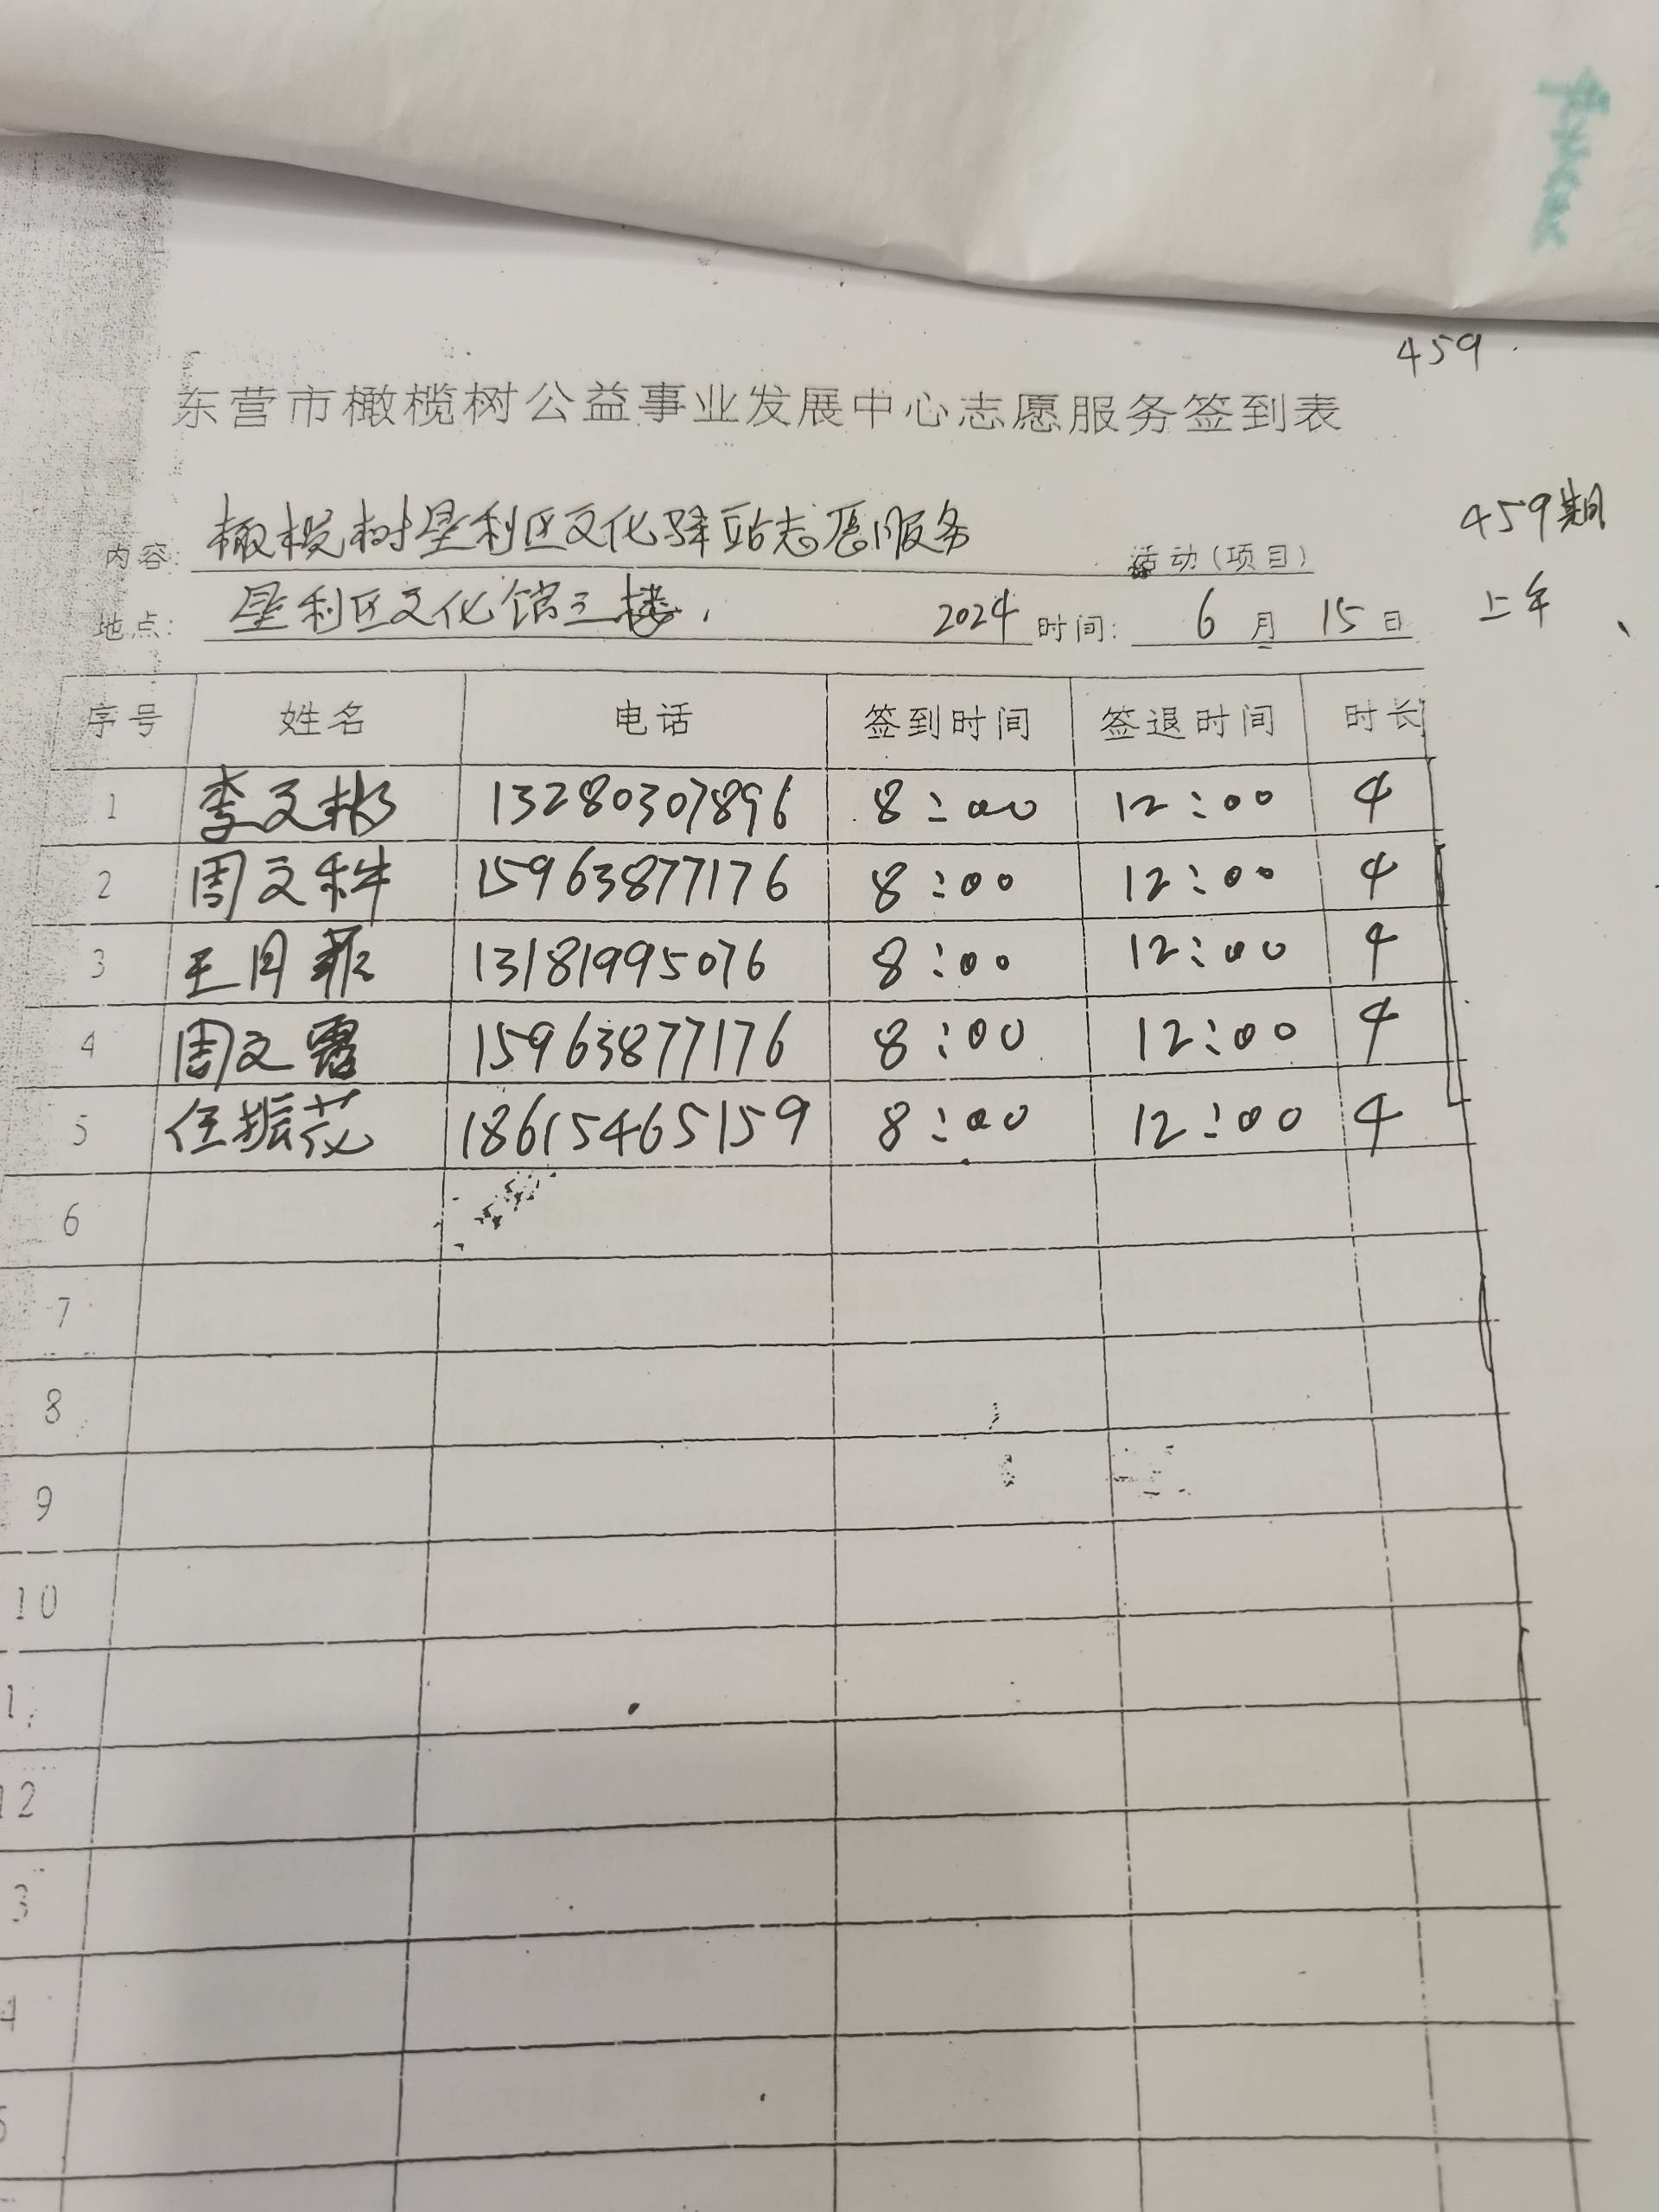 459
东营市橄榄树公益事业发展中心志愿服务签到表
459期
内容: 橄榄树垦利区文化驿站志愿服务 活动(项目)
地点: 垦利区文化馆三楼. 2024 时间: 6月15日 上午
序号 姓名 电话 签到时间 签退时间 时长
1 李文彬 13280307896 8:00 12:00 4
2 周文 15963877176 8:00 12:00 4
3 王月菲 13181995076 8:00 12:00 4
4 周文露 15963877176 8:00 12:00 4
5 任振花 18615465159 8:00 12:00 4
6
7
8
9
10
1
12
3
4
5